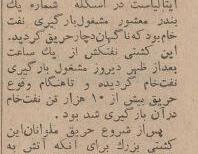 ایتالیاست در اسکله شماره یک
بندر معشور مشغول بارگیری نفت
خام بود که ناگهان دچار حریق گردید.
این کشتی نفتکش از یک ساعت
بعداز ظهر دیروز مشغول بارگیری
نفت خام گردیده و تاهنگام وقوع
حریق بیش از ۱۰ هزار تن نفت خام
در آن بارگیری شد بود.
پس از شروع حریق ملوانان این
کشتی بزرگ برای آنکه آتش به